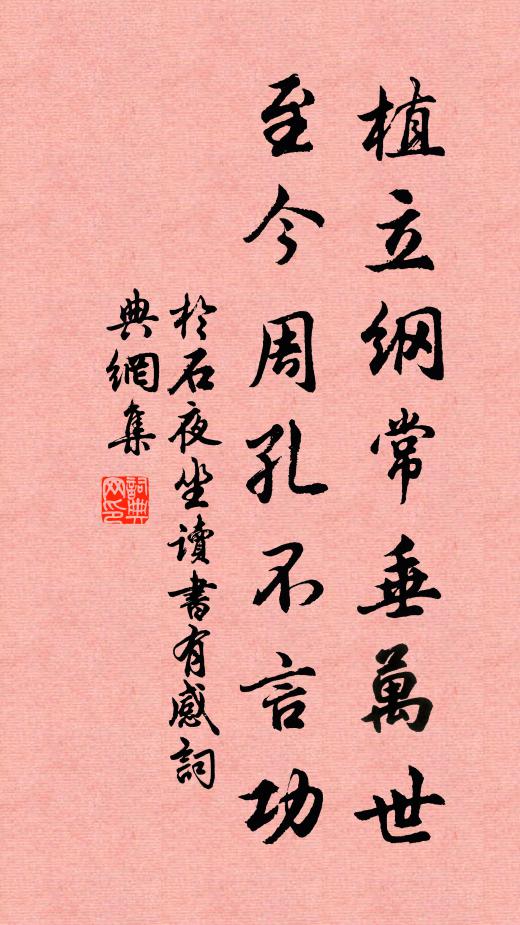 植立纲常垂萬世
至今周孔不言功
於石夜坐讀書有感詞
典網集
詞典网印